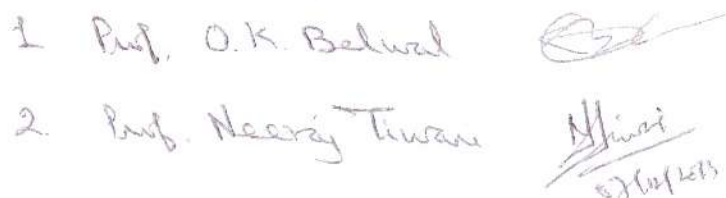 1 Prof. O.K. Belwal
2. Prof. Neeraj Tiwari